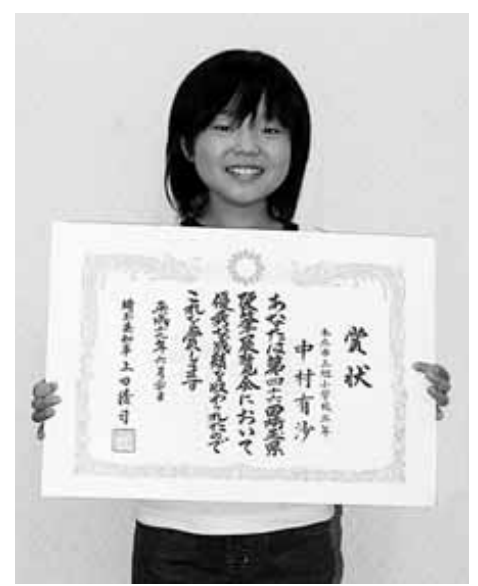 賞状
小学校三年
中村有沙
あなたは第四十六回埼玉県
硬筆展覧会において
優秀な成績を収められたので
これを賞します
平成二年六月 日
埼玉県知事 上田清司